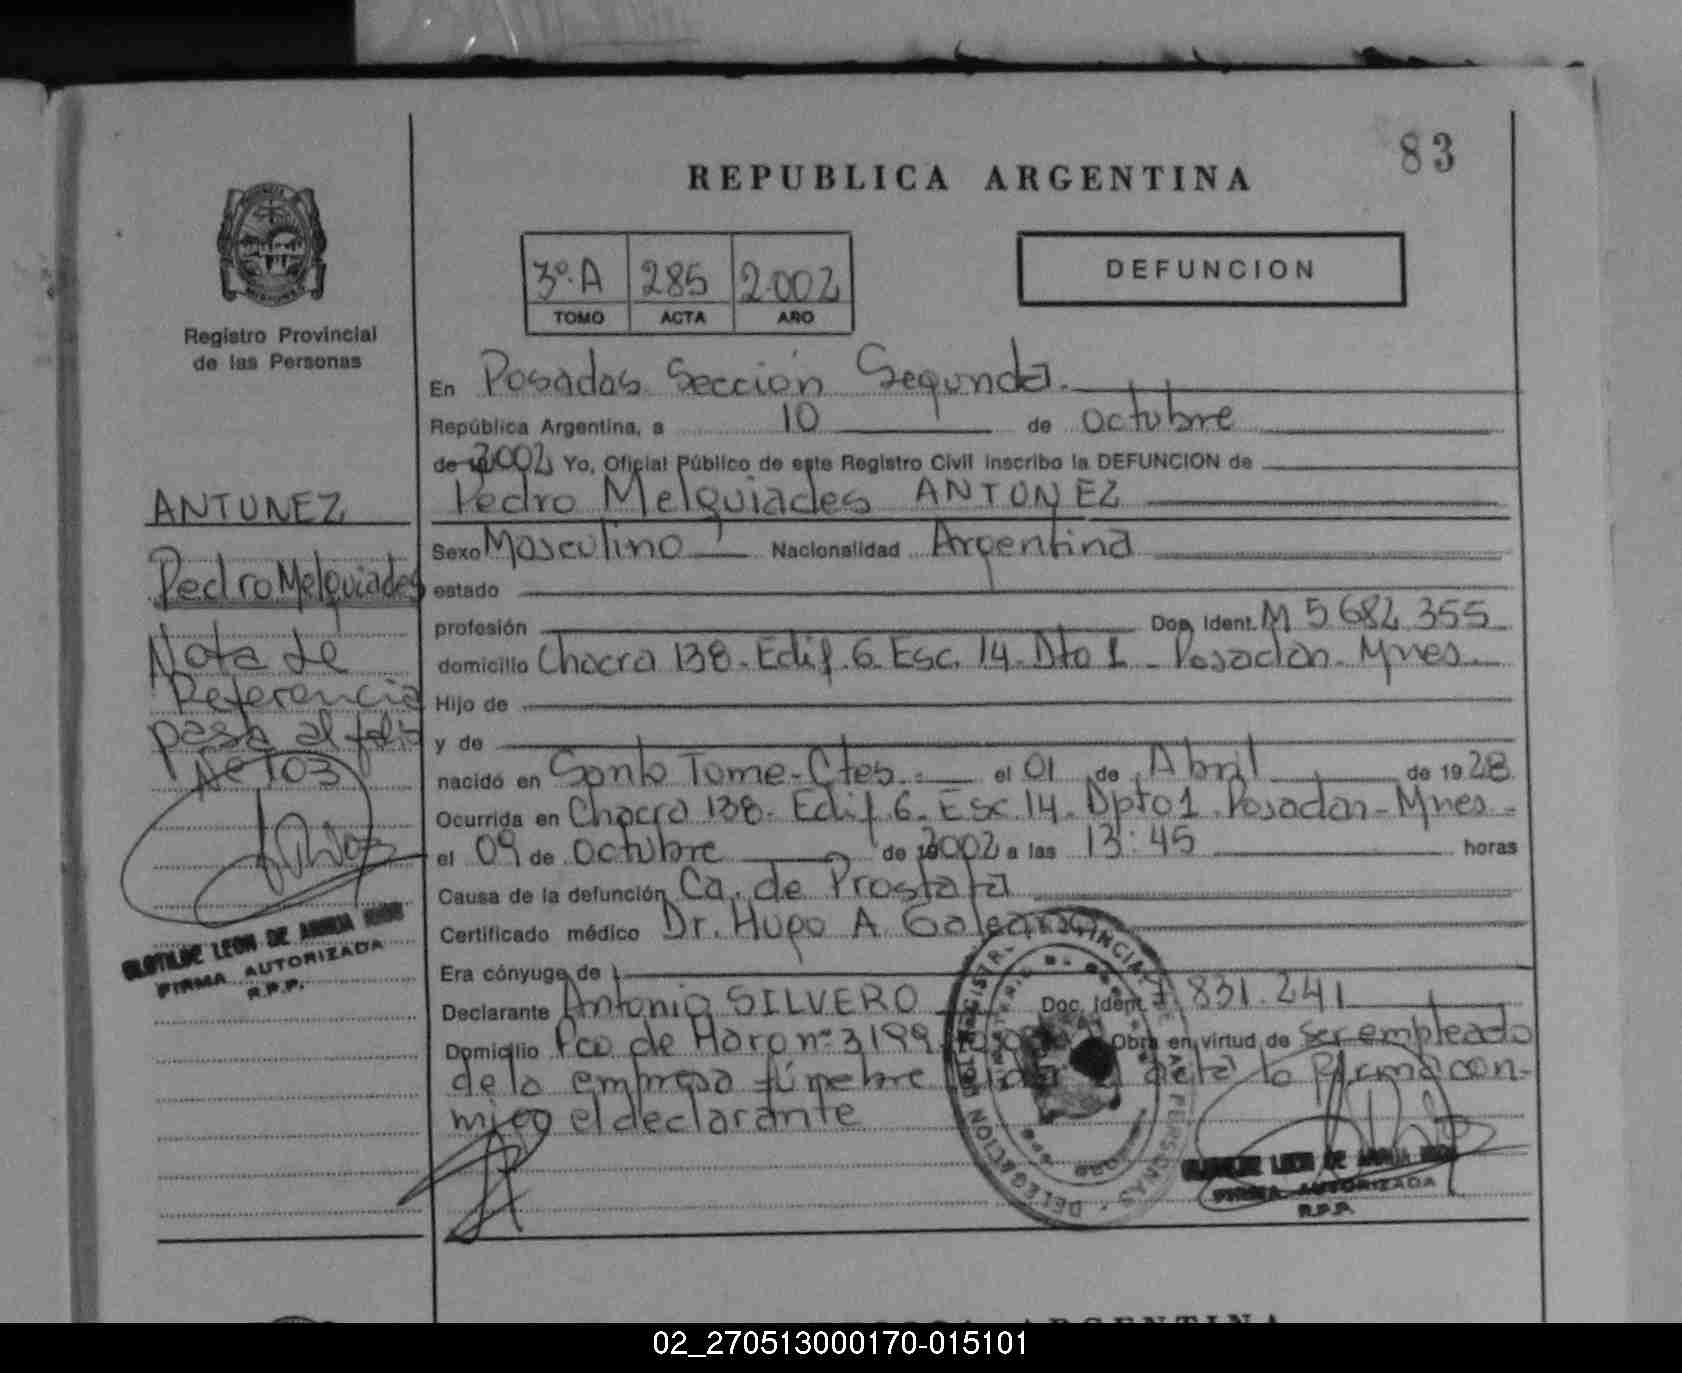 83
REPUBLICA ARGENTINA
3º.A 285 2.002
TOMO ACTA AÑO
DEFUNCION
Registro Provincial
de las Personas
En Posadas Sección Segunda.
República Argentina, a 10 de octubre
de 2002 Yo, Oficial Público de este Registro Civil inscribo la DEFUNCION de
Pedro Melquiades ANTUNEZ
Sexo Masculino Nacionalidad Argentina
estado
profesión Doc. Ident. M 5 682 355
domicilio Chacra 138. Edif. 6. Esc. 14. Dto 1 - Posadas. Mnes.
Hijo de
y de
nacido en Santo Tome-Ctes. el 01 de Abril de 1928
Ocurrida en Chacra 138. Edif. 6. Esc. 14. Dpto 1. Posadas-Mnes.
el 09 de Octubre de 2002 a las 13:45 horas
Causa de la defunción Ca. de Prostata
Certificado médico Dr. Hugo A Galeano
Era cónyuge de
Declarante Antonio SILVERO Doc. Ident. 7.831.241
Domicilio Pco de Haro nº 3199 Obra en virtud de ser empleado
de la empresa fúnebre acta la firma con-
migo el declarante
ANTUNEZ
Pedro Melquiades
Nota de
Referencia
pasa al folio
Nº 103
CLOTILDE LEON DE
FIRMA AUTORIZADA
R.P.P.
CLOTILDE LEON DE
FIRMA AUTORIZADA
R.P.P.
REPUBLICA ARGENTINA
02_270513000170-015101